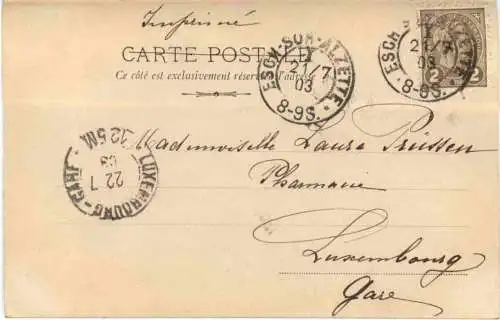 Imprimé
CARTE POSTALE
Ce côté est exclusivement réservé à l'adresse
ESCH-SUR-ALZETTE
21/7
03
8-9S.
ESCH
21/7
03
8-9S.
2 2
Mademoiselle Laura Prüssen
Pharmacie
Luxembourg
Gare
LUXEMBOURG-GARE
22 7
03
12-5M.